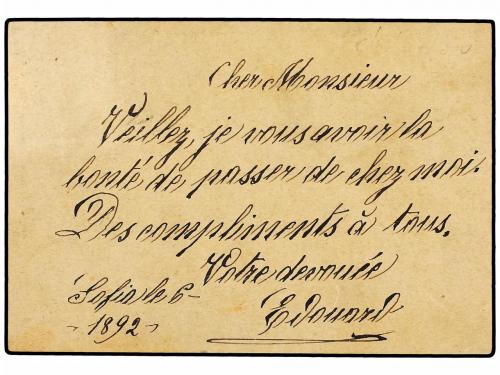 Cher Monsieur
Veillez, je vous avoir la
bonté de passer de chez moi.
Des compliments à tous.
Votre devouée
Sofia le 6-
-1892-
Edouard